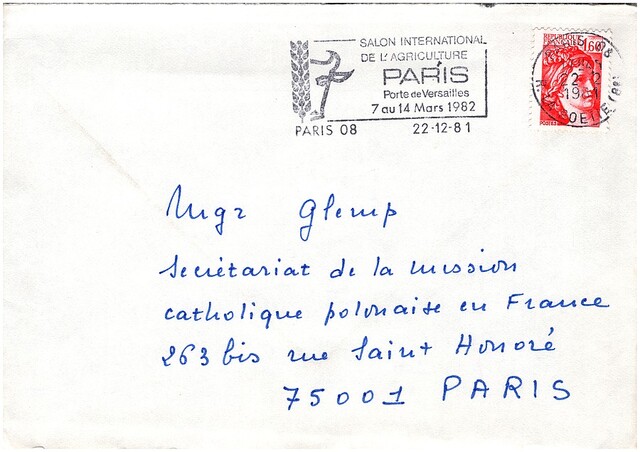 SALON INTERNATIONAL
DE L'AGRICULTURE
PARIS
Porte de Versailles
7 au 14 Mars 1982
PARIS 08 22-12-81
1,60
22-12
1981
Mgr Glemp
Secrétariat de la mission
catholique polonaise en France
263 bis rue Saint Honoré
75001 PARIS